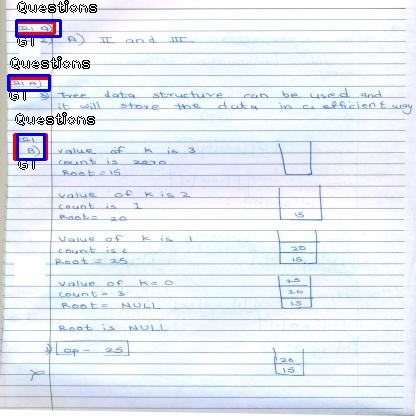 Questions
Q1 A)
GT 2) A) II and III
Questions
Q1 A)
GT 3) Tree data structure can be used and
it will store the data in a efficient way
Questions
Q1
B) value of K is 3
GT count is zero
Root = 15
value of K is 2
count is 1
Root = 20
15
Value of K is 1
count is 2
Root = 25
20
15
value of K = 0
count = 3
Root = NULL
25
20
15
Root is NULL
op - 25
20
15